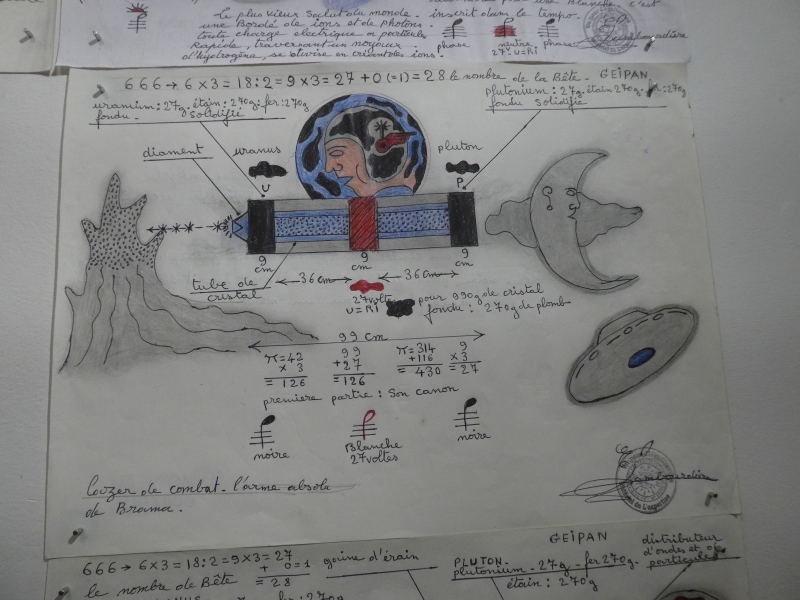 Le plus vieux Salut du monde. inscrit dans le tempo.
une Bordé de ions et de photons
toute charge electrique a particule
Rapide, traversant un noyaux
d'hydrogène, se divise en
phase
neutre
27v. U=RI
phase
666→ 6x3=18:2=9x3=27+0(=1)=28 le nombre de la Bête. GEIPAN
uranium: 27g. étain: 270g. fer: 270g
fondu. solidifié
plutonium: 27g. étain 270g. fer: 270g
fondu solidifié
diament
uranus
pluton
U
P
9
cm
9
cm
9
cm
36cm
36cm
tube de
cristal
27volts
U=RI
pour 990g de cristal
fondu: 270g de plomb
99 cm
π=42
x 3
= 126
99
+27
=126
π=314
+116
= 430
9
x3
= 27
première partie: Son canon
noire
Blanche
27voltes
noire
Lazer de combat. l'arme absolu
de Brama.
666→ 6x3=18:2=9x3=27
+ 0=1
= 28
le nombre de Bête
GEIPAN
PLUTON.
plutonium. 27g. fer 270g.
étain: 270g
distributeur
d'ondes et de
particules